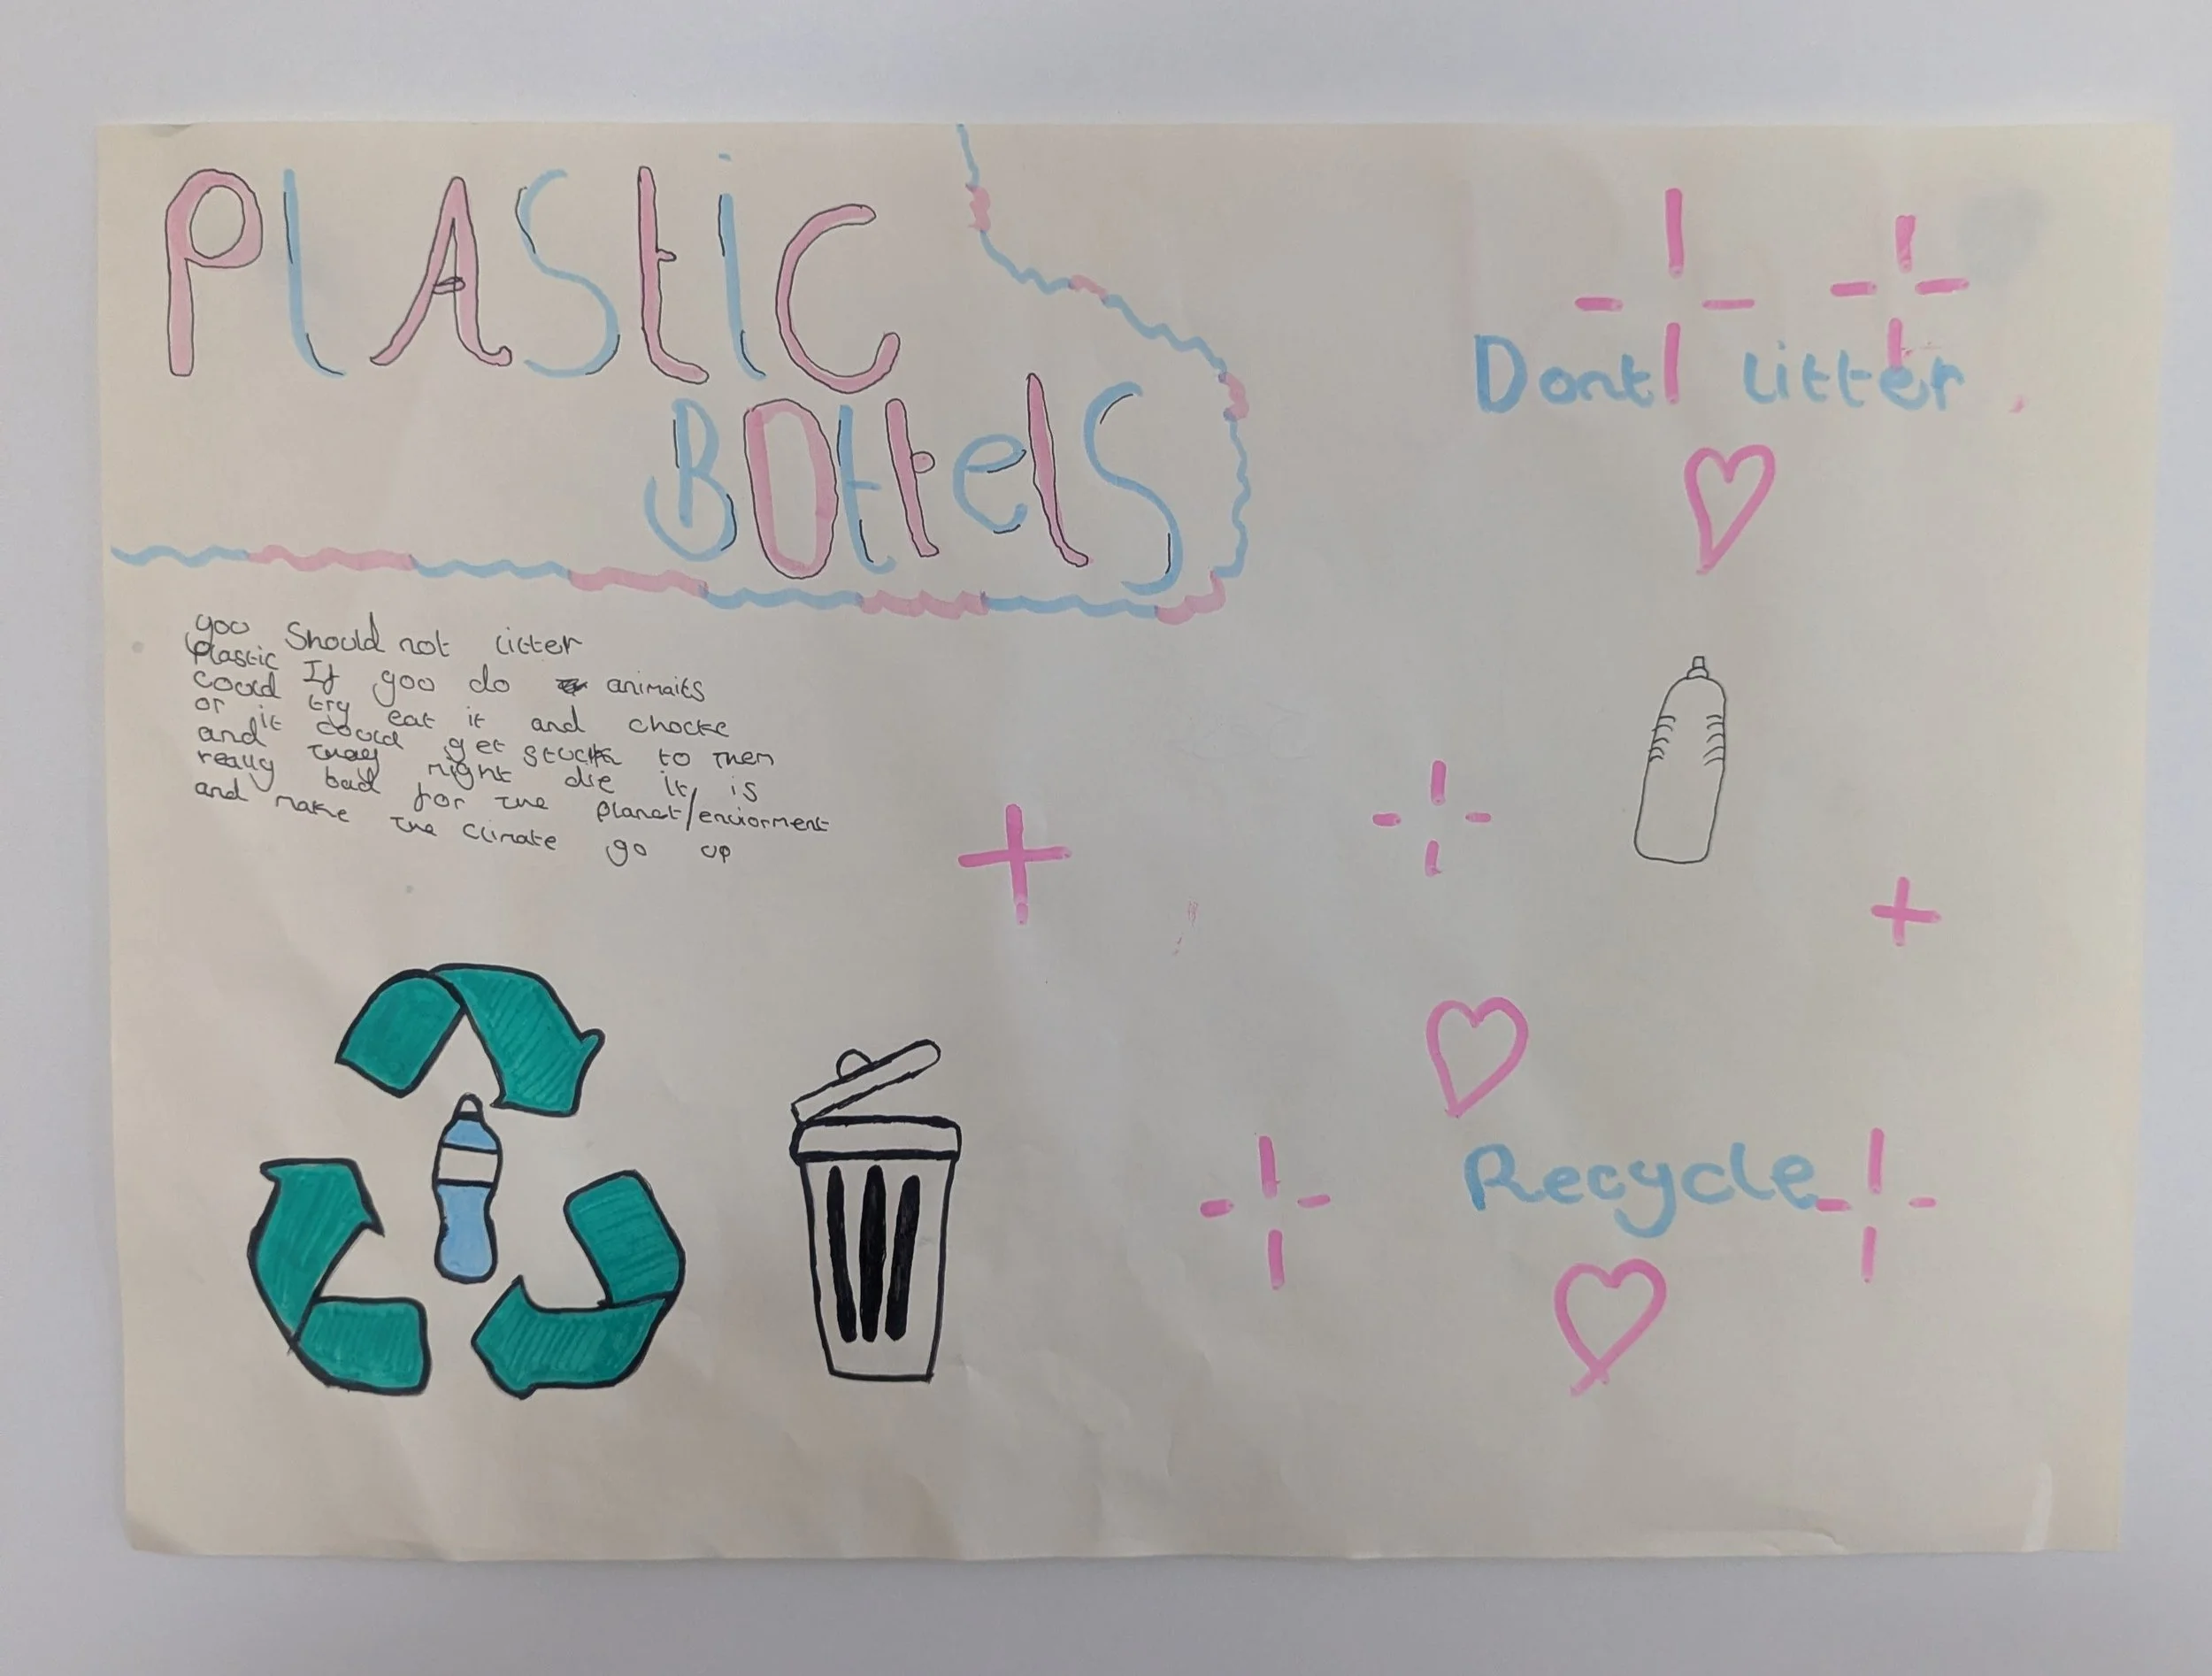 PLAStiC
BOttelS
Dont litter
you Should not litter
Plastic If you do animaits
could try eat it and chocke
or it could get stuck to them
and they might die it is
really bad for the planet/enviorment
and make the climate go up
Recycle